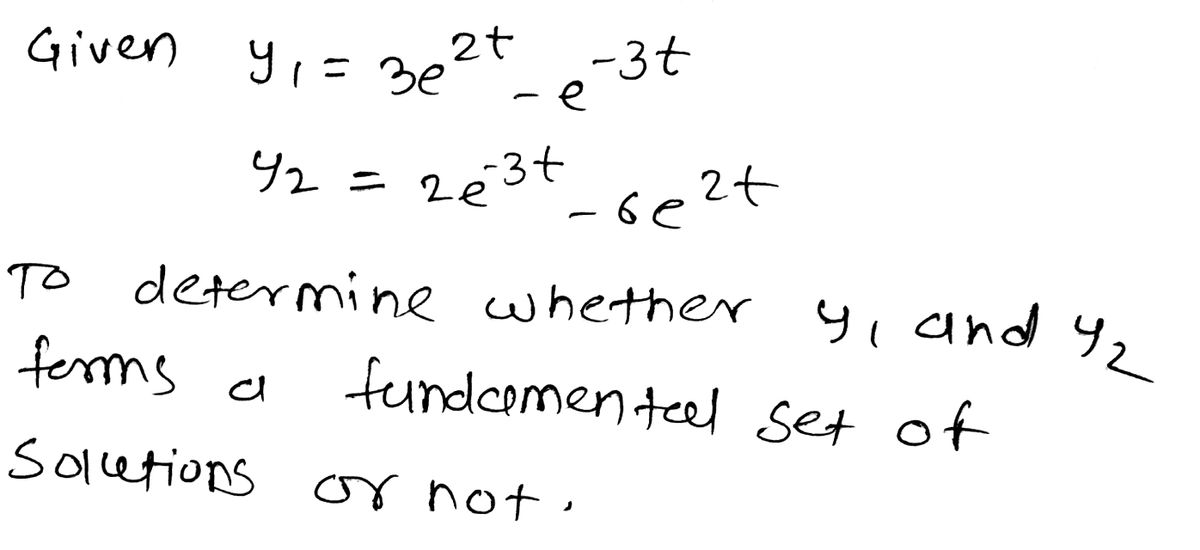 Given y₁ = 3e^{2t} - e^{-3t}
y₂ = 2e^{-3t} - 6e^{2t}
To determine whether y₁ and y₂
forms a fundamental set of
solutions or not.